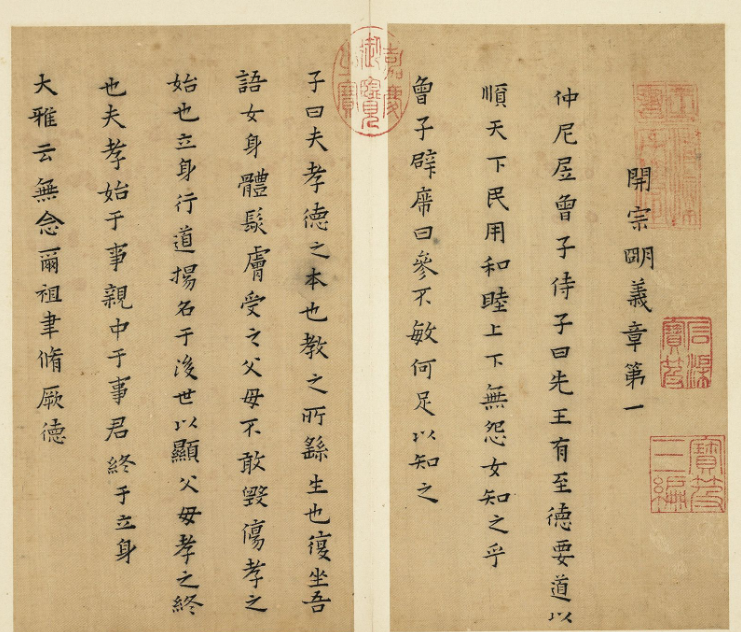 開宗朙義章第一
仲尼居曾子侍子曰先王有至徳要道以
順天下民用和睦上下無怨女知之乎
曾子辟席曰參不敏何足以知之
子曰夫孝徳之本也教之所繇生也復坐吾
語女身體髮膚受之父母不敢毀傷孝之
始也立身行道揚名于後世以顯父母孝之終
也夫孝始于事親中于事君終于立身
大雅云無念爾祖聿脩厥徳
嘉慶御覽之寶
石渠寶笈
寶笈三編